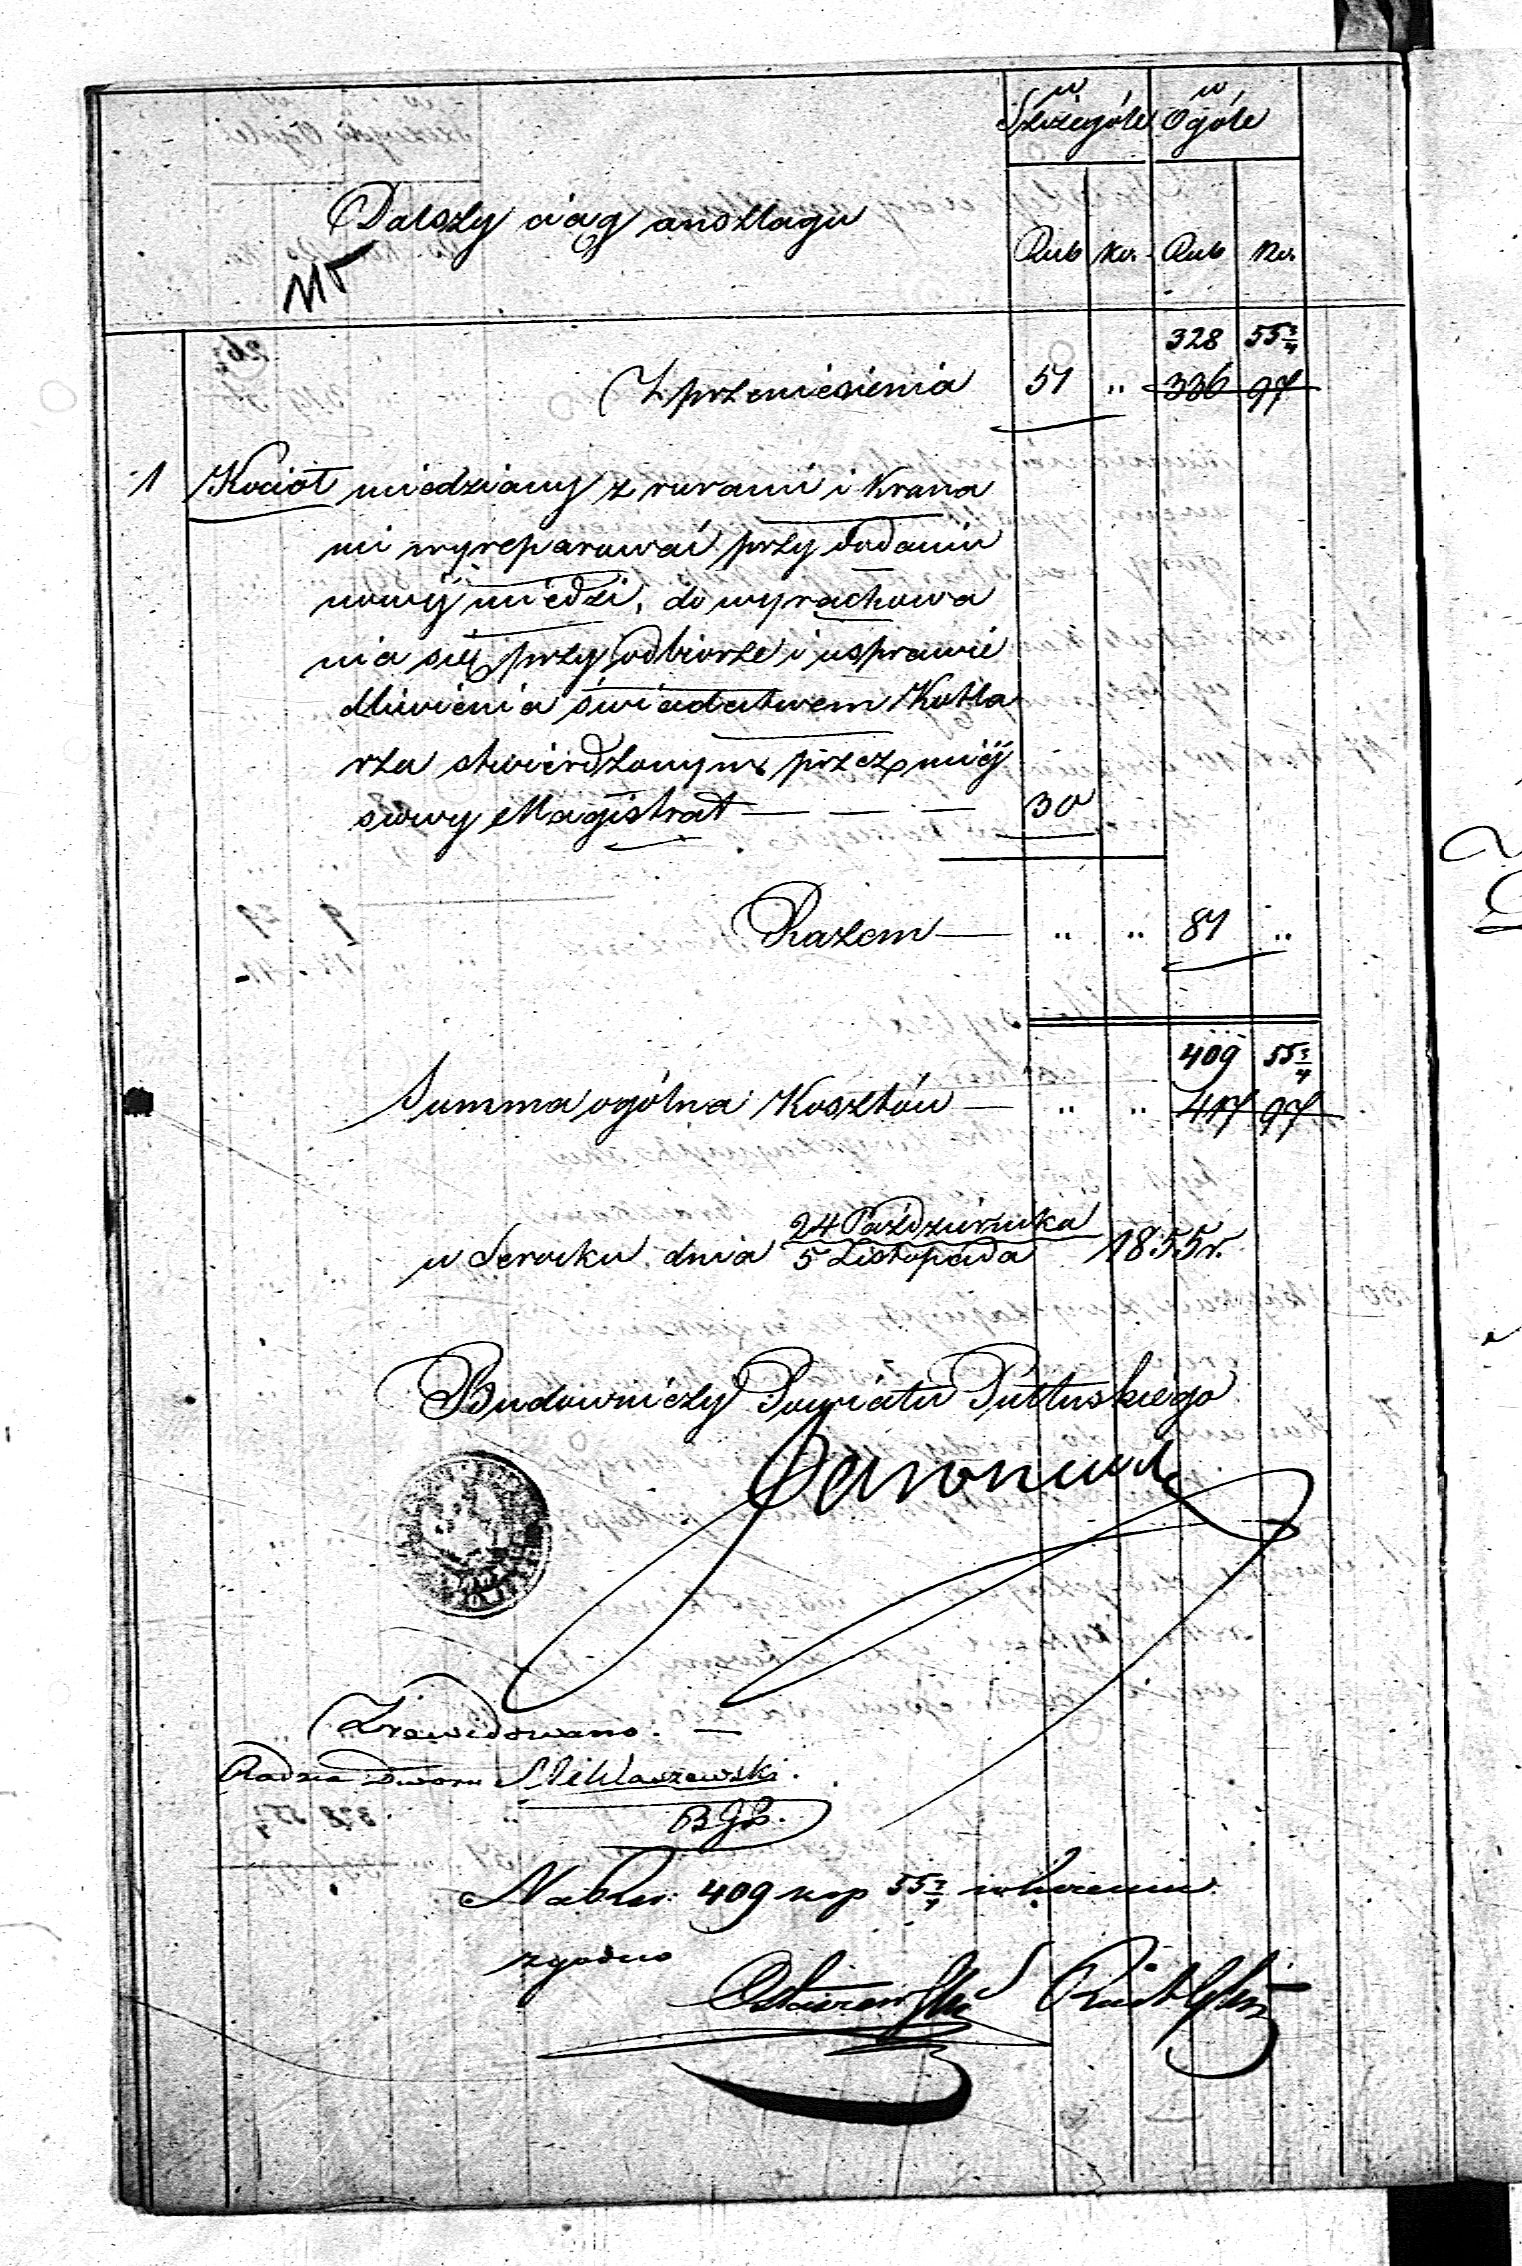 w Szczególe w Ogóle
Dalszy ciąg anszlagu
Rub Ko. Rub Ko.
328 55 3/4
Z przeniesienia 51 " 336 97
1 Kocioł miedziany z rurami i krana
mi wyreparować przy dodaniu
nowéj miedzi, do wyrachowa
nia się przy odbiorze i usprawie
dliwienia świadectwem Kotla
rza stwierdzonym przez miéj
scowy Magistrat — — — 30
Razem — " " 81 "
409 55 3/4
Summa ogólna Kosztów — " " 417 97
w Serocku dnia 24 Października
5 Listopada 1855 r.
Budowniczy Powiatu Pułtuskiego
Zrewidowano. —
Radzca Dworu Miklaszewski.
B.G.P.
Na Rsr. 409 kop 55 3/4
zgodno